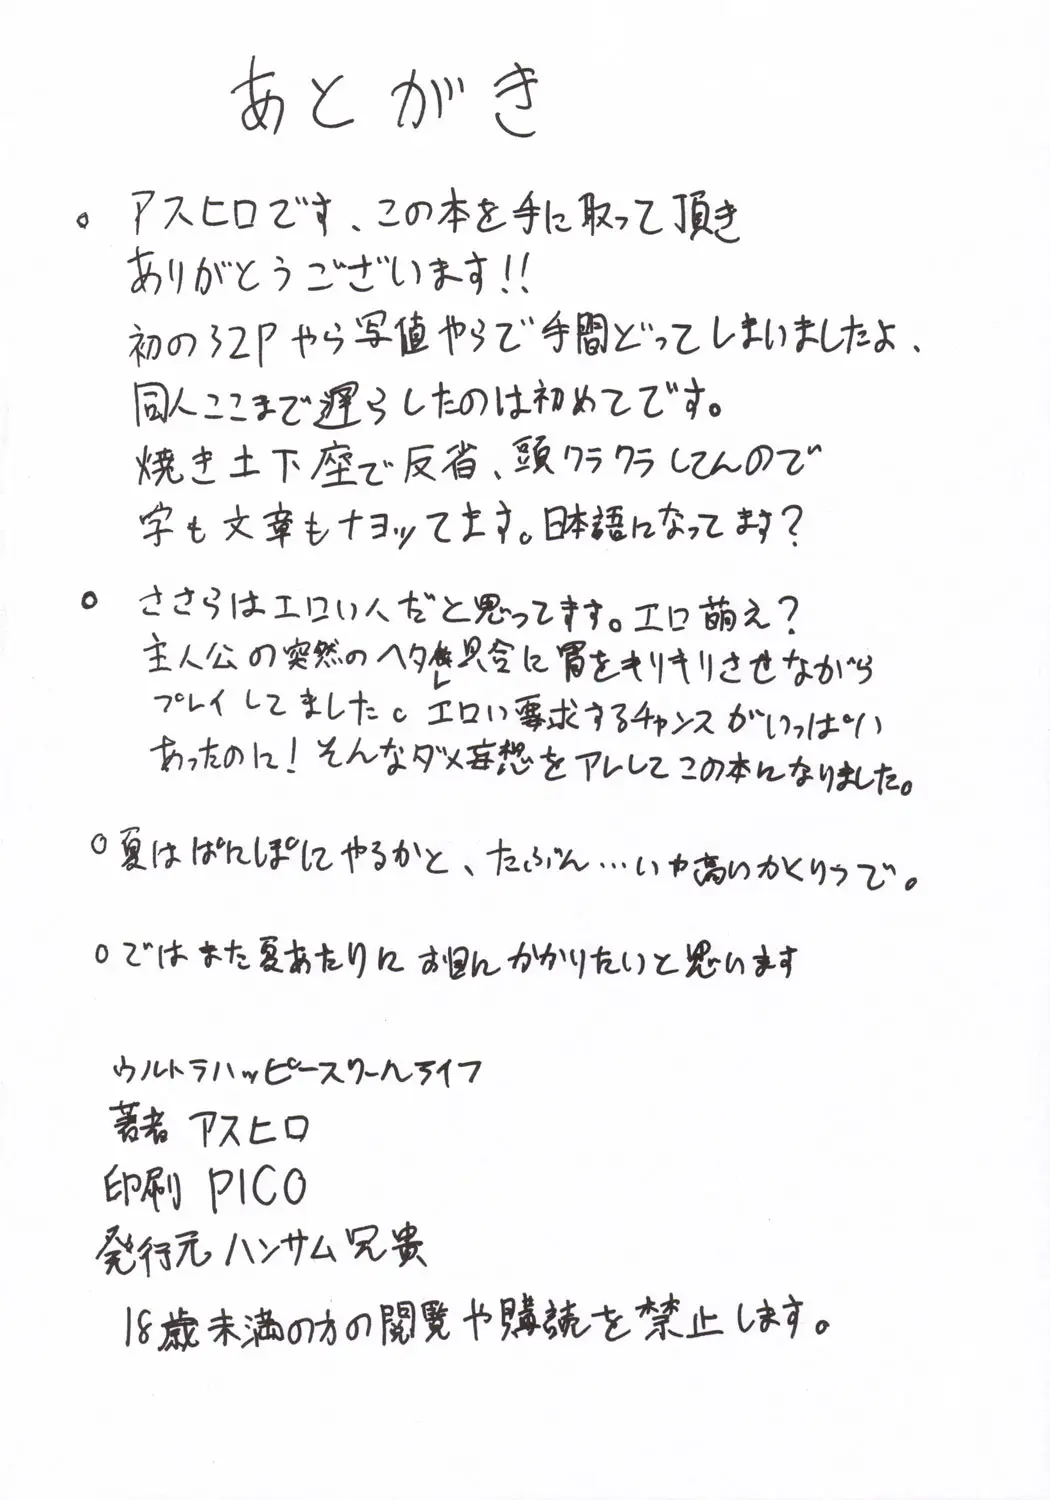 あとがき
。アスヒロです、この本を手に取って頂き
ありがとうございます!!
初の32Pやら写値やらで手間どってしまいましたよ、
同人ここまで遅らしたのは初めてです。
焼き土下座で反省、頭クラクラしてんので
字も文章もナヨッてます。日本語になってます?
。ささらはエロい人だと思ってます。エロ萌え?
主人公の突然のヘタレ具合に胃をキリキリさせながら
プレイしてました。エロい要求するチャンスがいっぱい
あったのに!そんなダメ妄想をアレしてこの本になりました。
。夏はぱにぽにやるかと、たぶん…いや高いかくりつで。
。ではまた夏あたりにお目にかかりたいと思います
ウルトラハッピースクールライフ
著者 アスヒロ
印刷 PICO
発行元 ハンサム兄貴
18歳未満の方の閲覧や購読を禁止します。